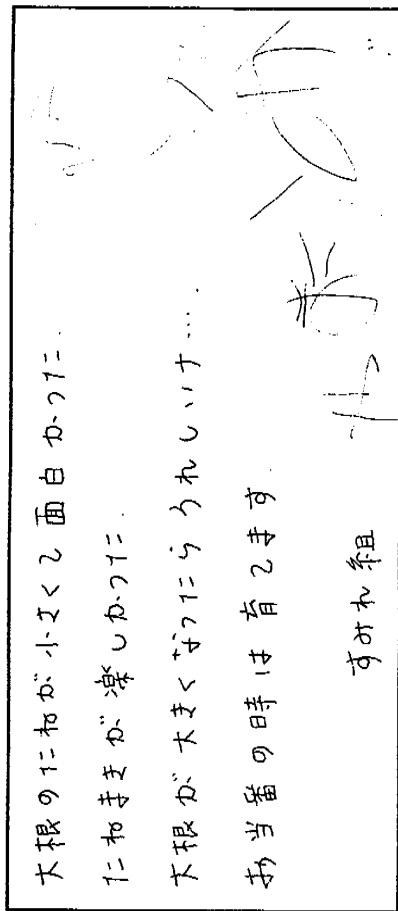 大根のたねが小さくて面白かった.
たねまきが楽しかった.
大根が大きくなったらうれしいナ….
お当番の時は育てます.
すみれ組